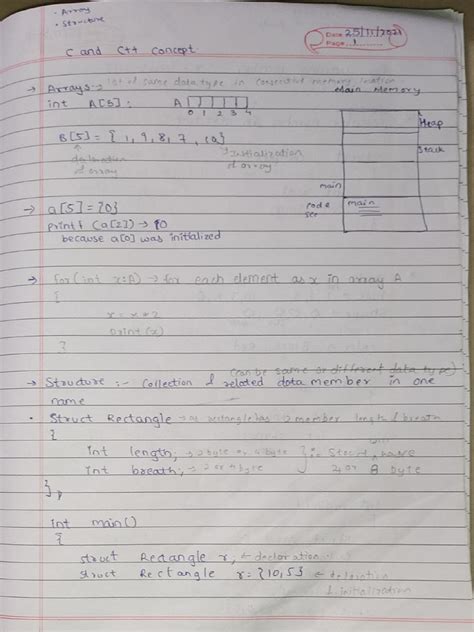 • Array
• Structure
Date 25/11/2021
Page 1
C and C++ Concept
→ Arrays → list of same data type in consecutive memory location
int A[5]; A
0 1 2 3 4
Main Memory
Heap
Stack
main
code sec
main
B[5] = { 1, 9, 8, 7, }
declaration of array
Initialization of array
→ a[5] = {0}
printf (a[2]) →
because a[0] was initialized
→ for (int x:A) → for each element as x in array A
{
x = x * 2
print (x)
}
(can be same or different data type)
→ Structure :- Collection of related data member in one
name
• Struct Rectangle → as rectangle has 2 member length & breath
{
int length; → 2 byte or 4 byte
int breath; → 2 or 4 byte
4 or 8 byte
};
int main()
{
struct Rectangle r; ← declaration
struct Rectangle r = {10,5} ← declaration
& initialization